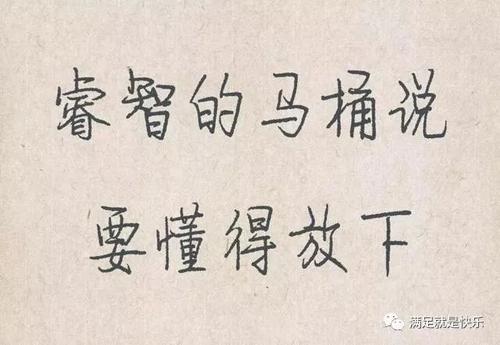 睿智的马桶说
要懂得放下
满足就是快乐